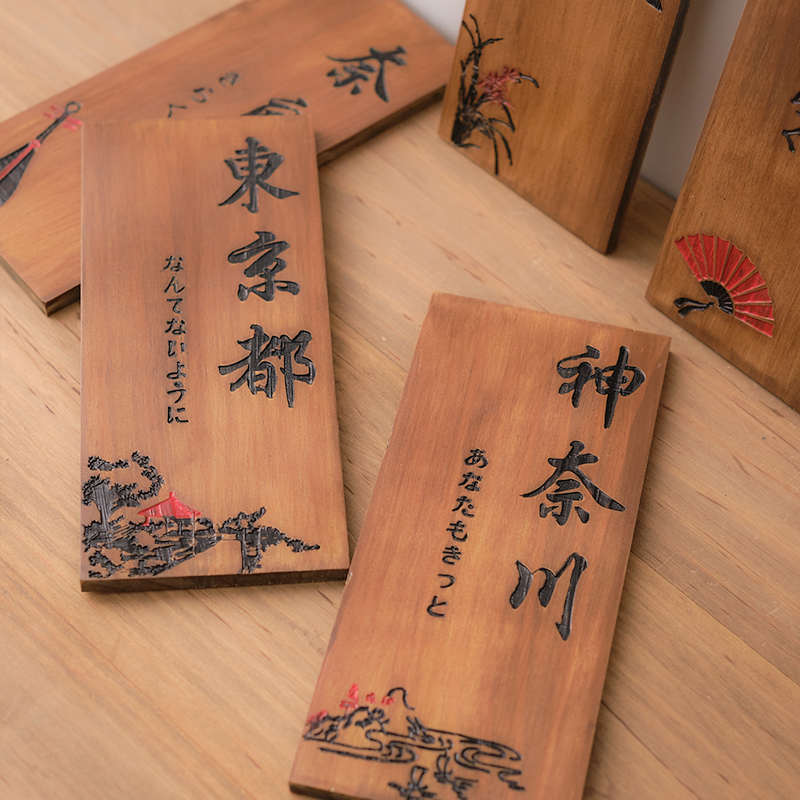 東京都
なんてないように
神奈川
あなたもきっと
茶